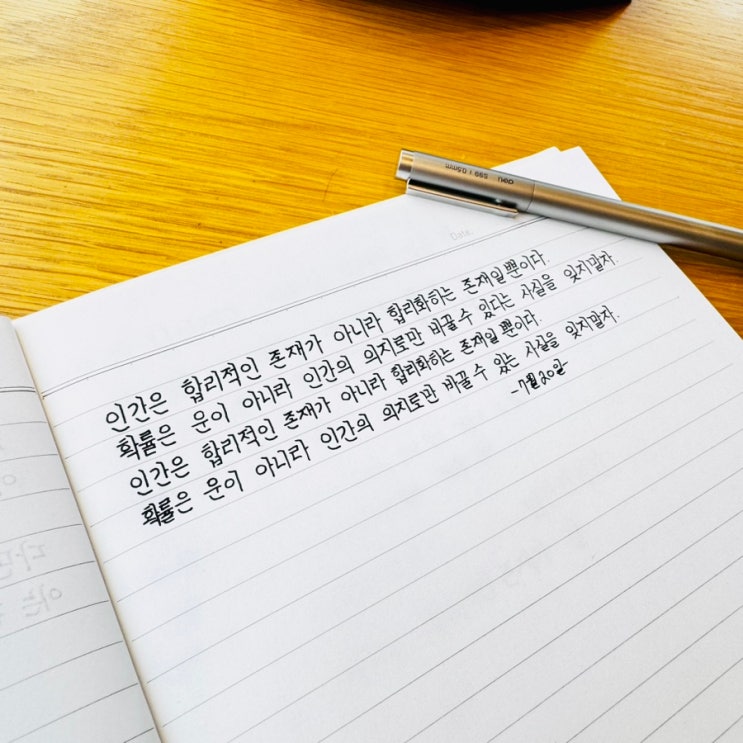 Date.
deli S99 | 0.5mm
인간은 합리적인 존재가 아니라 합리화하는 존재일 뿐이다.
확률은 운이 아니라 인간의 의지로만 바꿀 수 있다는 사실을 잊지말자.
인간은 합리적인 존재가 아니라 합리화하는 존재일 뿐이다.
확률은 운이 아니라 인간의 의지로만 바꿀 수 있는 사실을 잊지말자.
-7월20일-